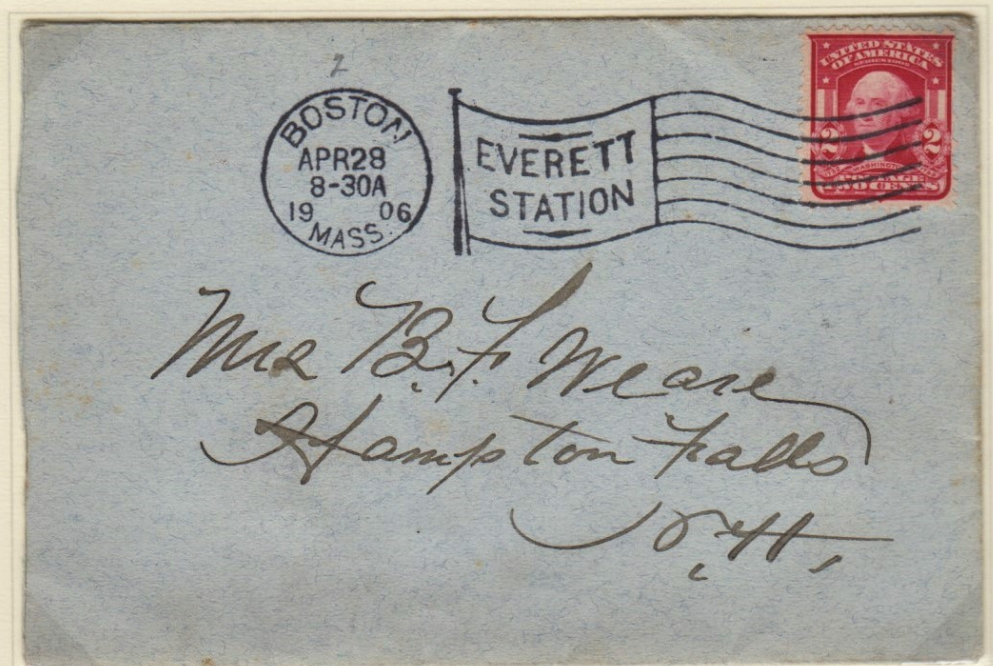 2
BOSTON
APR28
8-30A
19 06
MASS.
EVERETT
STATION
UNITED STATES
OF AMERICA
2 2
TWO CENTS
Mrs B. F. Weare
Hampton Falls
N. H.